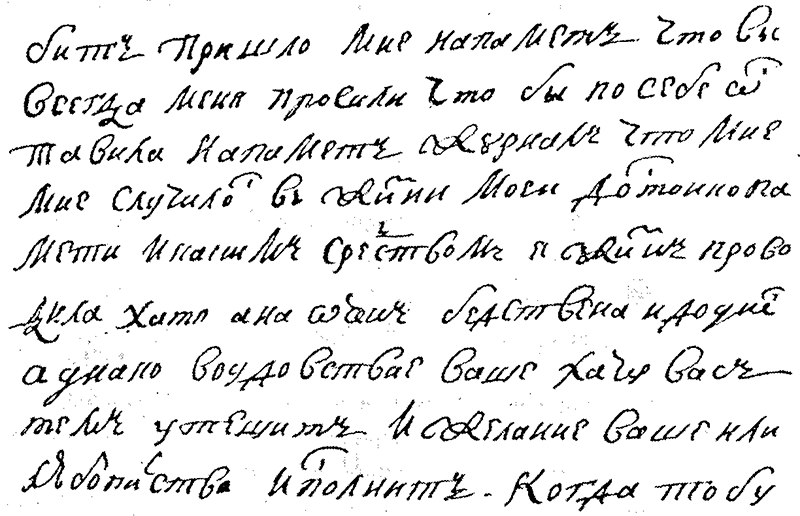 бить пришло мне напаметь что вы
всегда меня просили что бы по себе ѡс
тавила напаметь журналъ что мне
мне случилос въ жизни моеи достоино па
мети икакимъ средствомъ я жизнь прово
дила хатя ана ѡчинь бедствена идоднес
аднако воудовства́е ваше хачу васъ
темъ утешить и желание ваше или
любопитства исполнить. Когда тобу